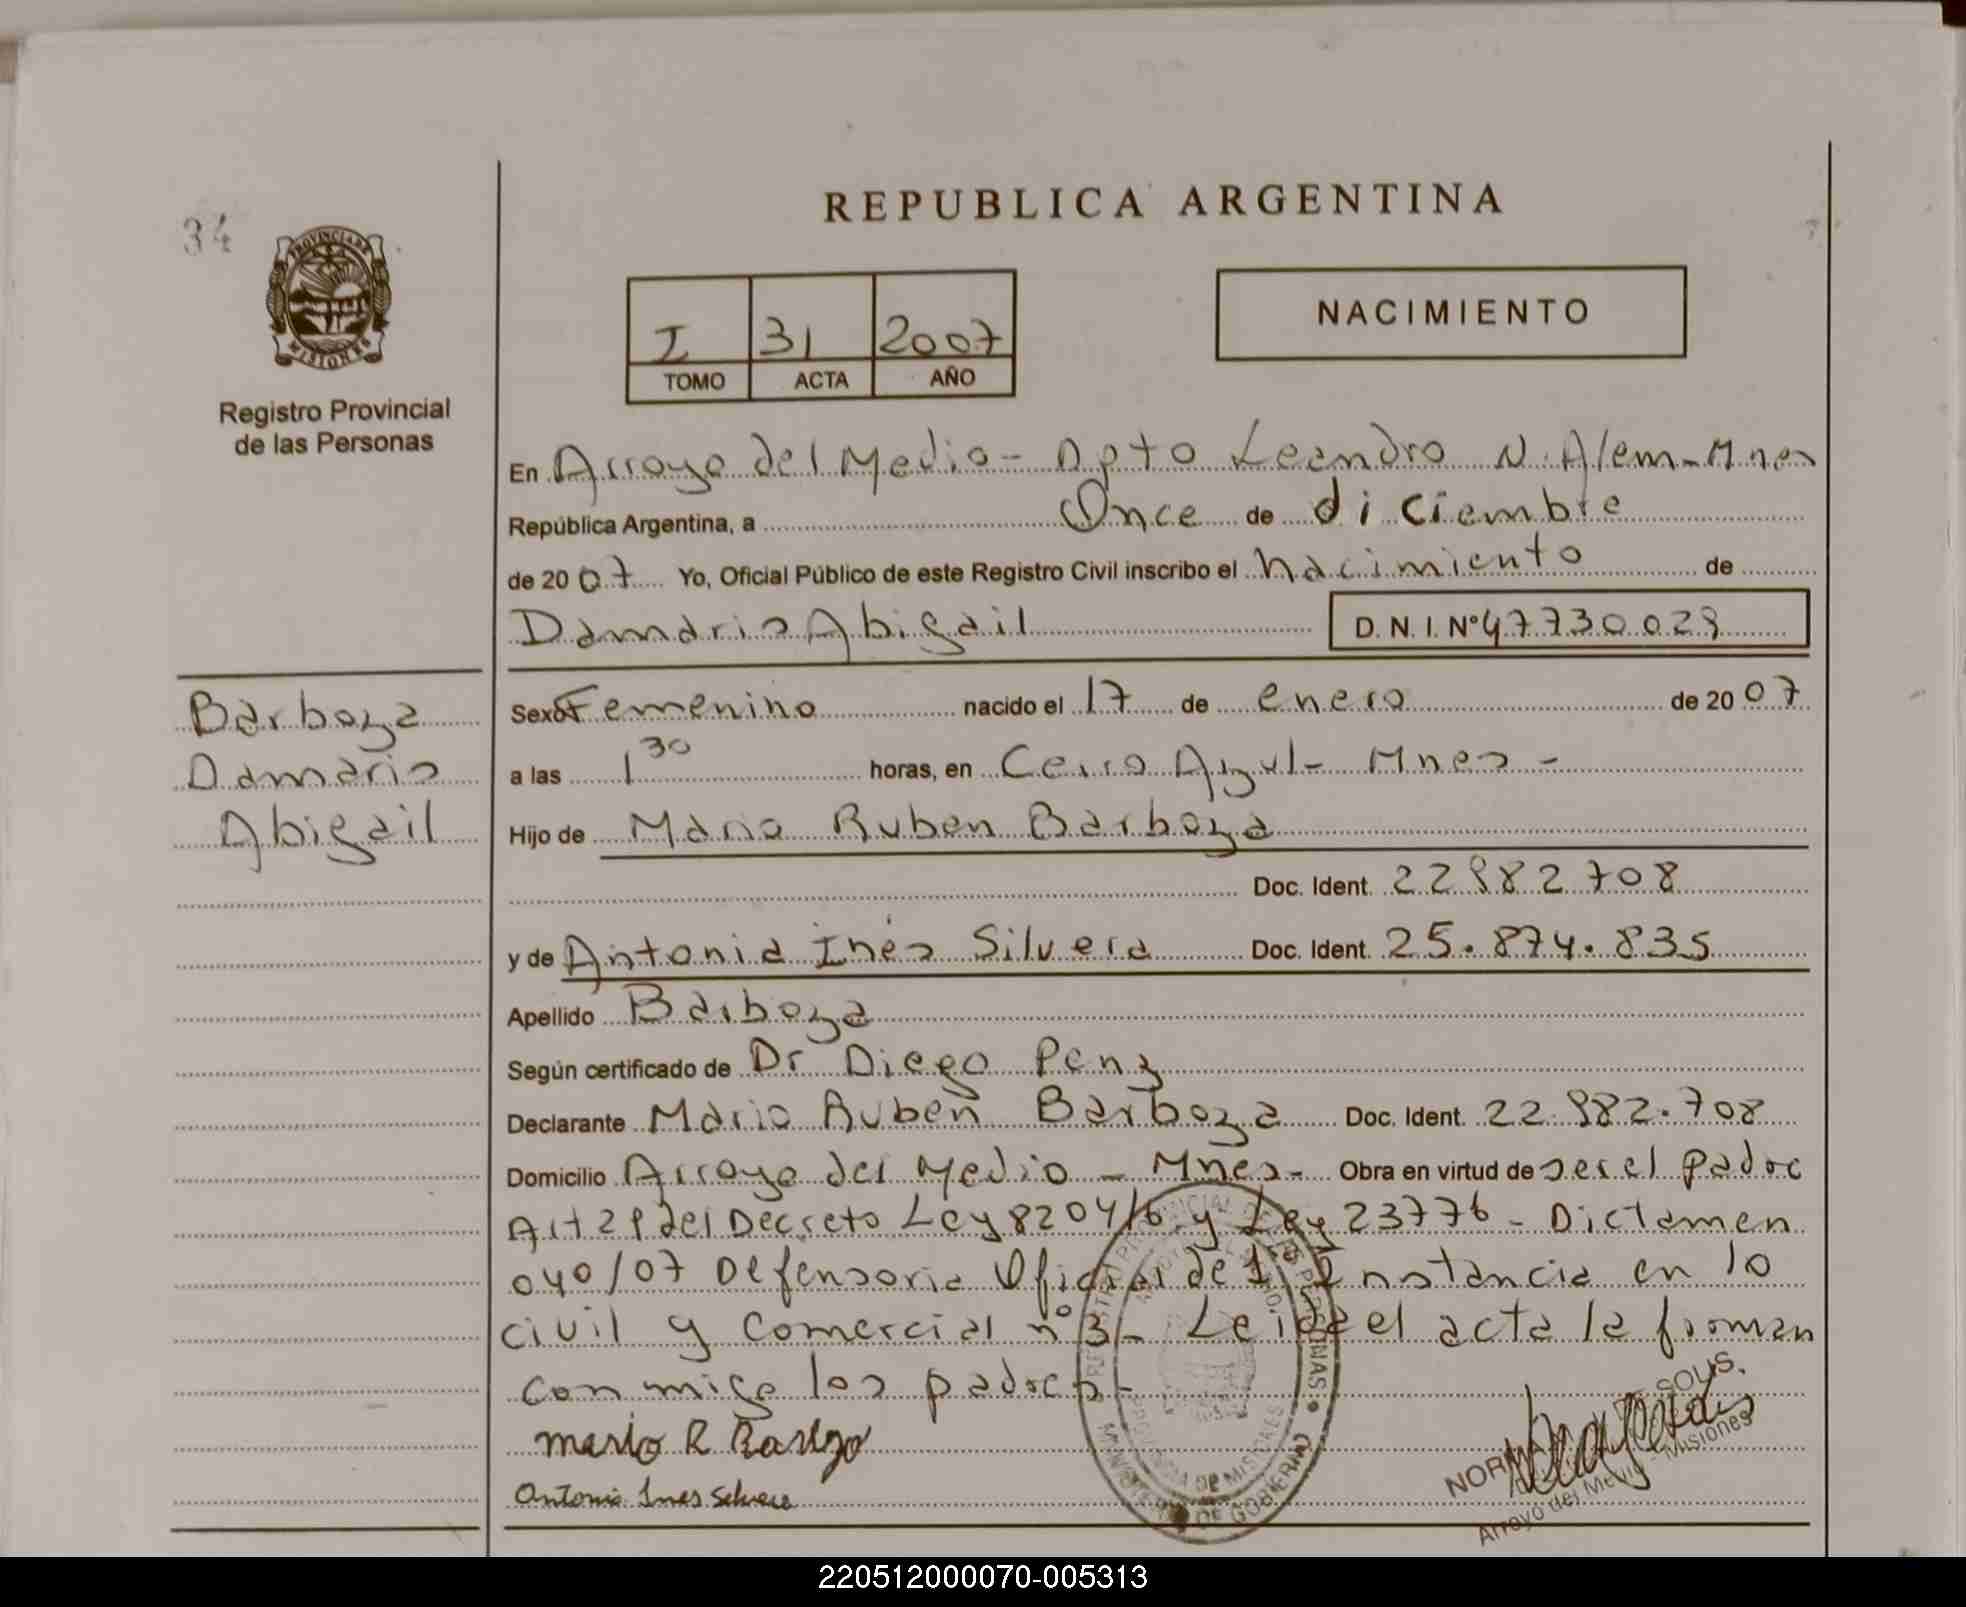 REPUBLICA ARGENTINA
34
PROVINCIA DE
MISIONES
Registro Provincial
de las Personas
I 31 2007
TOMO ACTA AÑO
NACIMIENTO
En Arroyo del Medio - Dpto Leandro N. Alem - Mnes
República Argentina, a Once de diciembre
de 2007 Yo, Oficial Público de este Registro Civil inscribo el nacimiento de
Damaris Abigail D.N.I. Nº 47730029
Barboza
Damaris
Abigail
Sexo Femenino nacido el 17 de enero de 2007
a las 1 30 horas, en Cerro Azul - Mnes -
Hijo de Mario Ruben Barboza
Doc. Ident. 22982708
y de Antonia Inés Silvera Doc. Ident. 25.874.835
Apellido Barboza
Según certificado de Dr Diego Penz
Declarante Mario Ruben Barboza Doc. Ident. 22.982.708
Domicilio Arroyo del Medio - Mnes - Obra en virtud de ser el padre
Art 29 del Decreto Ley 8204/6 y Ley 23776 - Dictamen
040/07 Defensoria Oficial de 1º Instancia en lo
civil y Comercial nº 3 - Leida el acta la firman
conmigo los padres -
Mario R Barboza
Antonia Ines Silvera
MINISTERIO DE GOBIERNO
PROVINCIA DE MISIONES
SOLIS.
Arroyo del Medio - Misiones
220512000070-005313